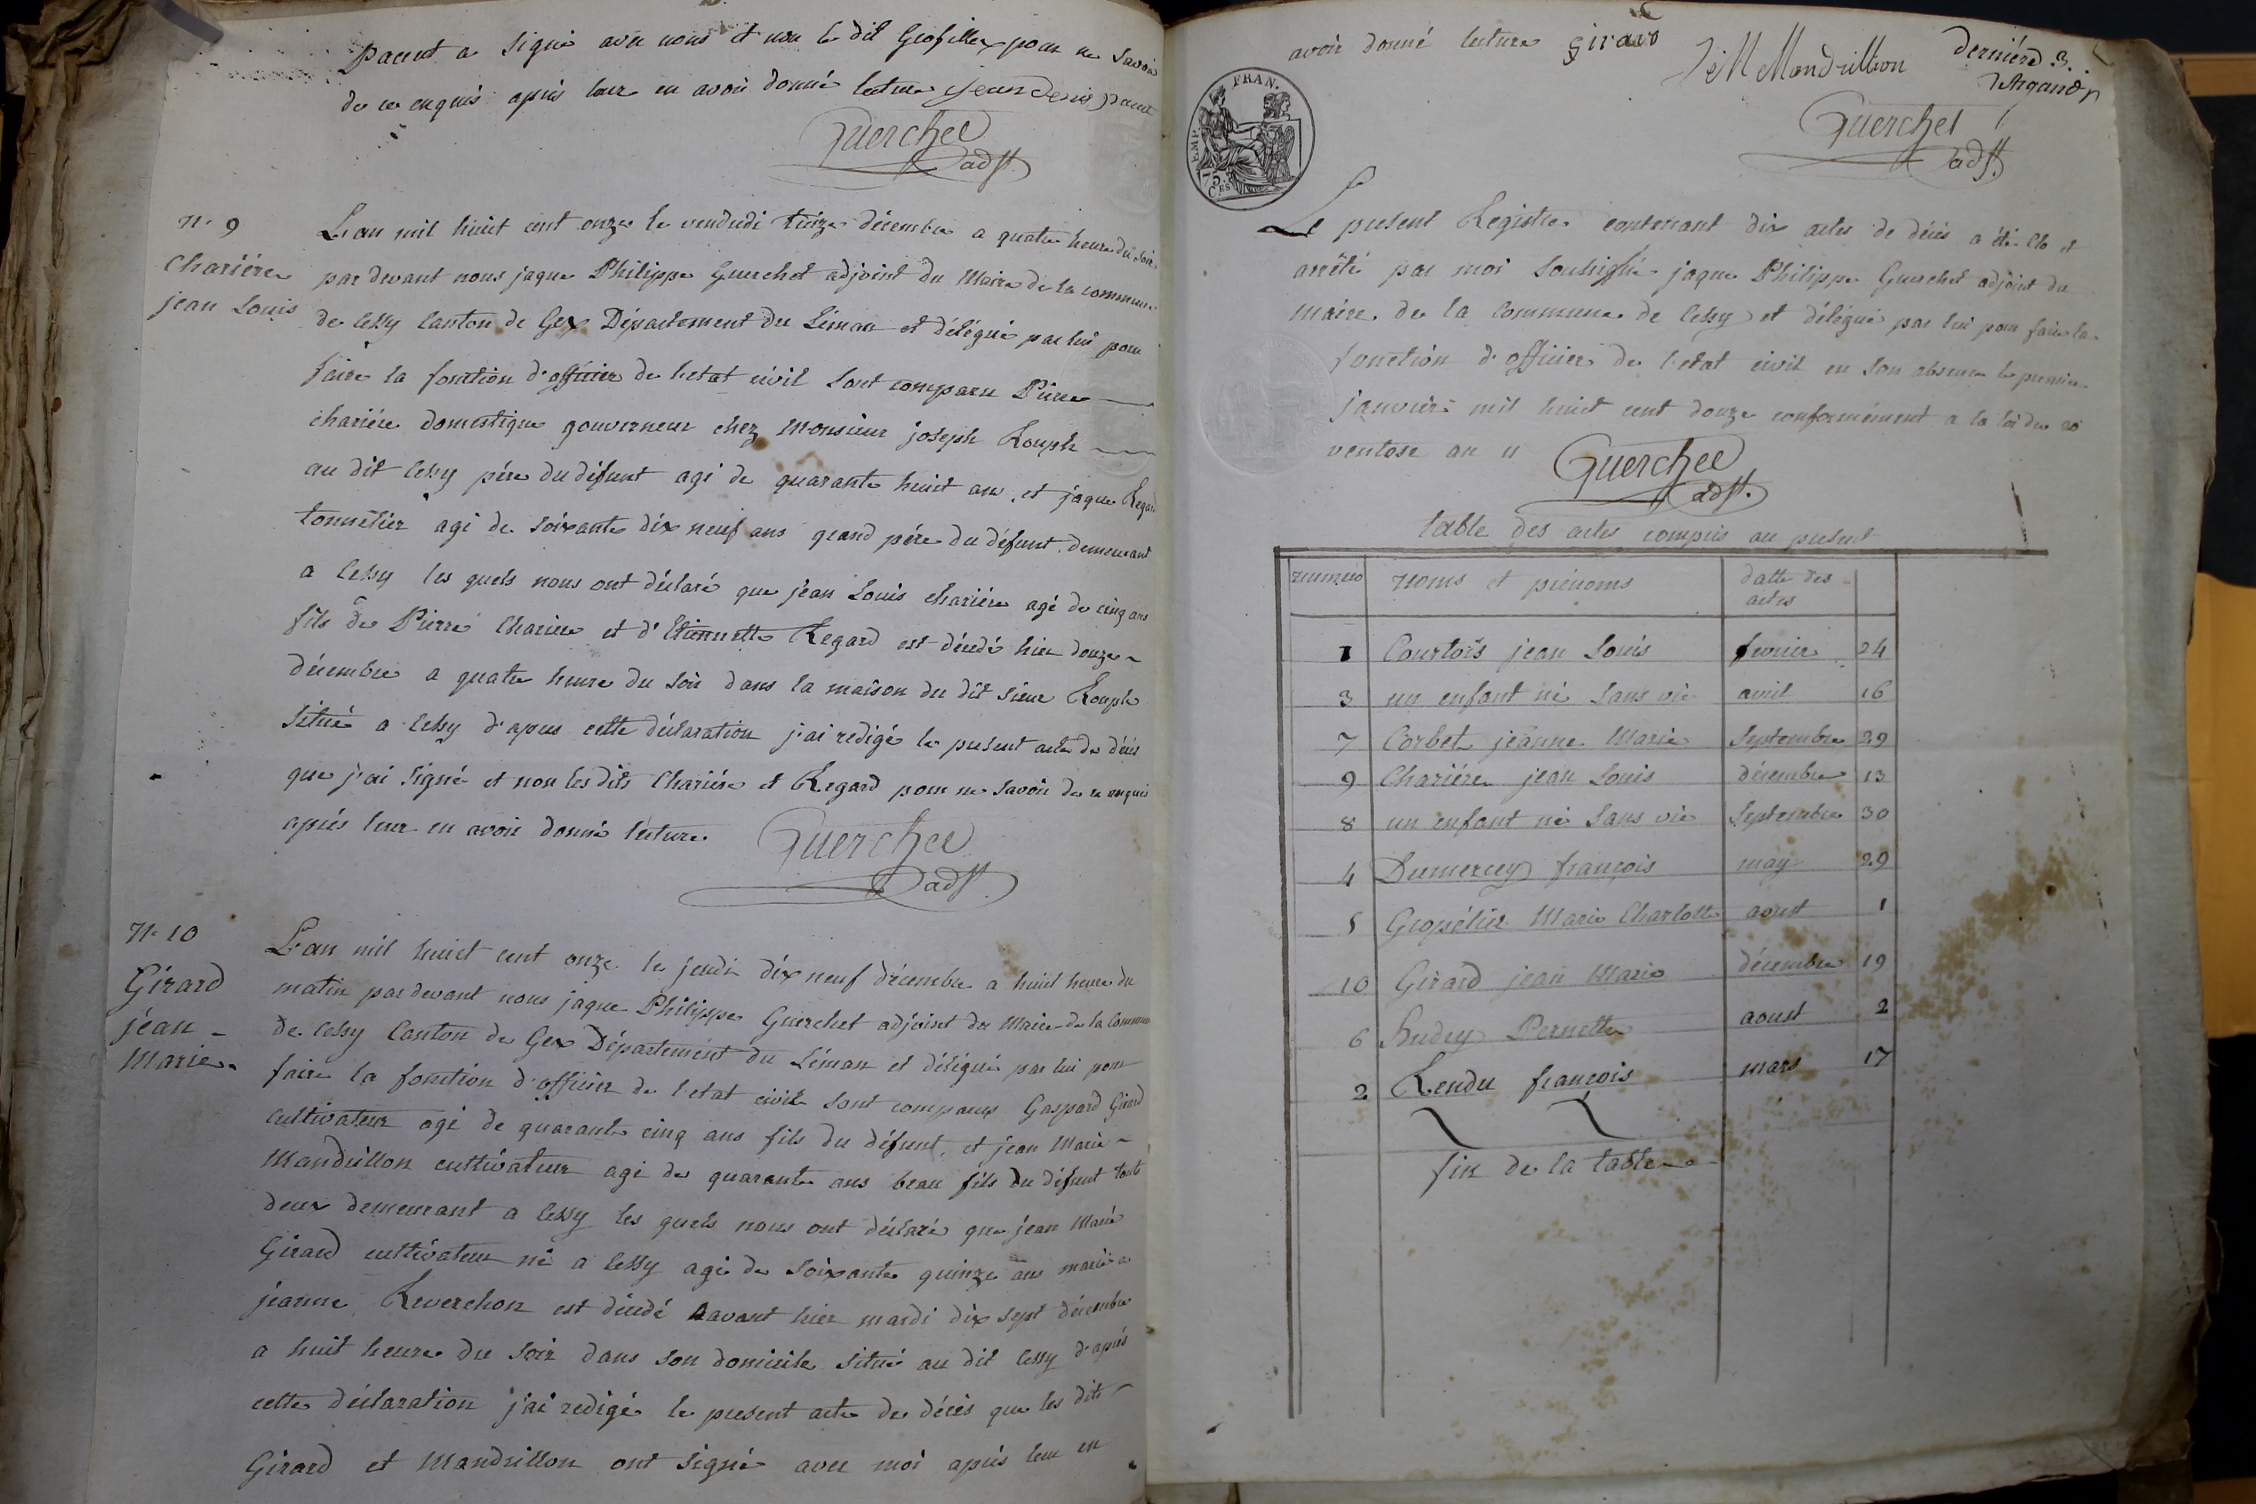 parent a signé avec nous et non le dit Grosfiller pour ne savoir
de ce enquis apris leur en avoir donné lecture jean denis parent
Guerchet
adjt.
N. 9
Chariére
jean Louis
L'an mil huit cent onze le vendredi treize décembre a quatre heure du soir
par devant nous jaque Philippe Guerchet adjoint du Maire de la commune
de Cessy Canton de Gex Département du Léman et délégué par lui pour
faire la fonction d'officier de l'etat civil sont comparu Pierre
chariére domestique gouverneur chez Monsieur joseph Rouph
au dit Cessy pére du défunt agé de quarante huit ans, et jaque Regard
tonnélier agé de soixante dix neuf ans grand pére du défunt demeurant
a Cessy les quels nous ont déclaré que jean Louis chariére agé de cinq ans
fils de Pierre Chariere et d'Etiennette Regard est décédé hier douze
décembre a quatre heure du soir dans la maison du dit sieur Rouph
situé a Cessy d'apres cette déclaration j'ai redigé le present acte de décés
que j'ai signé et non les dits Chariére et Regard pour ne savoir de ce enquis
aprés leur en avoir donné lecture.
Guerchet
adjt.
N. 10
Girard
jean
Marie.
L'an mil huict cent onze le jeudi dix neuf décembre a huit heure du
matin pardevant nous jaque Philippe Guerchet adjoint du Maire de la Commune
de Cessy Canton de Gex Département du Léman et délégué par lui pour
faire la fonction d'officier de l'etat civil sont comparus Gaspard Girard
cultivateur agé de quarante cinq ans fils du défunt, et jean Marie
Mandrillon cultivateur agé de quarante ans beau fils du défunt touts
deux demeurant a Cessy les quels nous ont déclaré que jean Marie
Girard cultivateur né a Cessy agé de soixante quinze ans marié a
jeanne Reverchon est décédé avant hier mardi dix sept décembre
a huit heure du soir dans son domicile situé au dit Cessy d'aprés
cette déclaration j'ai redigé le present acte de décés que les dits
Girard et Mandrillon ont signé avec moi aprés leur en
avoir donné lecture girard
J M Mandrillon
derniére 3.
Guerchet
adjt.
EMP. FRAN.
75 CES
Le present Registre contenant dix actes de décés a été clo et
arrêté par moi soussigné jaque Philippe Guerchet adjoint du
maire de la Commune de Cessy et délégué par lui pour faire la
fonction d'officier de l'etat civil en son absence le premier
janvier mil huict cent douze conformément a la loi du 20
ventose an 11
Guerchet
adjt.
table des actes compris au present
numero noms et prénoms datte des actes
1 Courtois jean Louis fevrier 24
3 un enfant né sans vie avril 16
7 Corbet jeanne Marie Septembre 29
9 Chariére jean Louis décembre 13
8 un enfant né sans vie Septembre 30
4 Dumercey françois may 29
5 Grosfélier Marie Charlotte aoust 1
10 Girard jean Marie décembre 19
6 Hudry Pernette aoust 2
2 Rendu françois mars 17
fin de la table